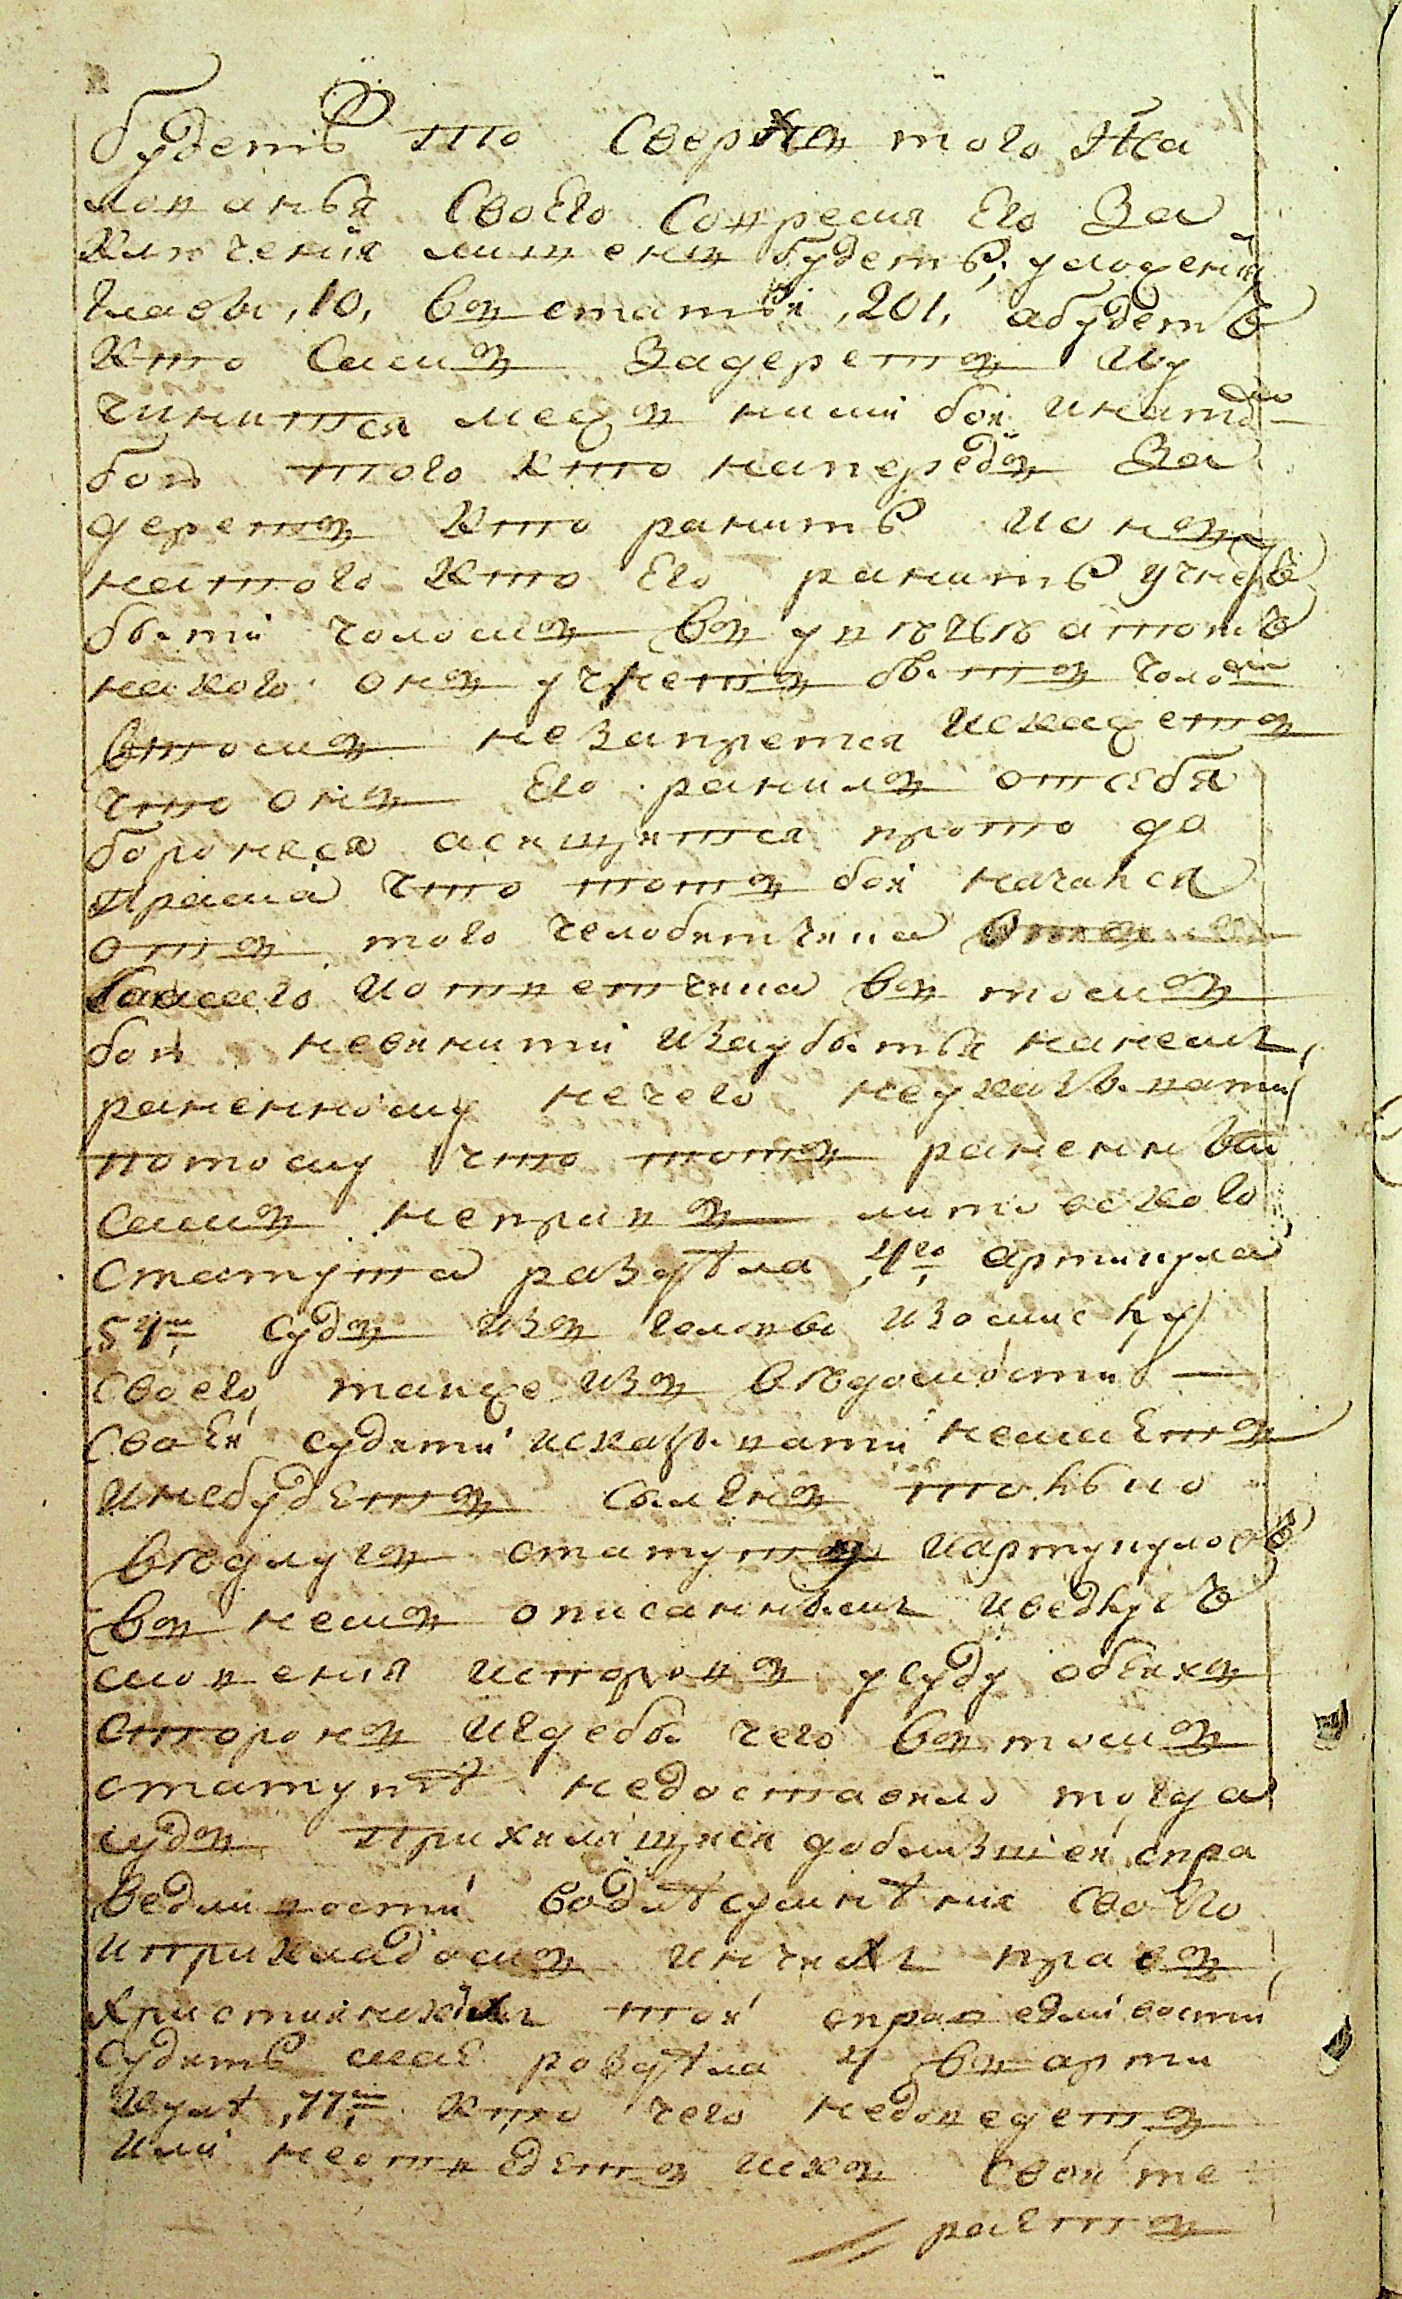 будетъ то сверхъ того жа
лованья своего сопремя его за
ключения лишенъ будетъ; уложения
главы ,10, въ статьи ,201, а будетъ
кто самъ задеретъ и у
чинится межъ ними бои и на томъ
бою того кто напередъ за
деретъ кто ранитъ и онъ
на того кто его ранитъ учнетъ
бити челомъ въ увѣчьѣ а тотъ
на кого онъ учнетъ бить челомъ
в томъ не запрется и скажетъ
что онъ его ранилъ от себя
бороняся а сыщится про то до
пряма что тотъ бои начался
отъ того челобитчика
самого и ответчика въ томъ
бою не винити и за убытки на немъ
раненному нечего не указывати
потому что тотъ раненныи
самъ неправъ литовского
статута раздѣла 4го артикула
54м судъ изъ головы и зъ мислу
своего также изъ вѣдомости
своеи судити и сказывати не имеетъ
и небудетъ силенъ только
вѣдлугъ статутъ и артикуловъ
въ немъ описаннымъ и ведлугъ
мовения и споровъ у суду обеихъ
сторонъ и где бы чего въ томъ
статутѣ недоставило тогда
судъ прихиляющися до ближшеи спра
ведливости водлѣ сумнѣния своего
и прикладомъ инчихъ правъ
християнскихъ тои справедливости
судить мае роздѣла 4 въ арти
кулѣ ,77, кто чего недоведетъ
или неотведетъ искъ свои те
раетъ